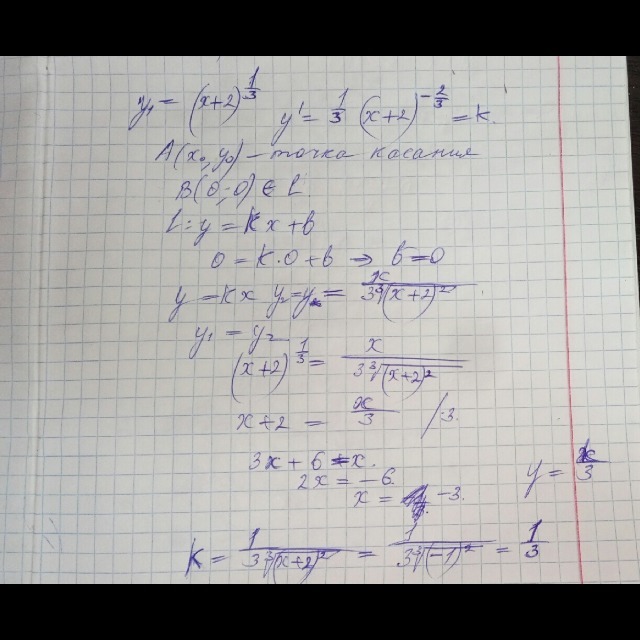 y₁ = (x+2)^{1/3} y' = 1/3 (x+2)^{-2/3} = k.
A(x₀, y₀) – точка касания
B(0; 0) ∈ L
L: y = kx + b
0 = k·0 + b ⇒ b = 0
y = kx y₂ = y = x/(3∛(x+2)²)
y₁ = y₂
(x+2)^{1/3} = x/(3∛(x+2)²)
x+2 = x/3 /·3.
3x + 6 = x.
2x = -6.
x = -3.
y = x/3
k = 1/(3∛(x+2)²) = 1/(3∛(-1)²) = 1/3